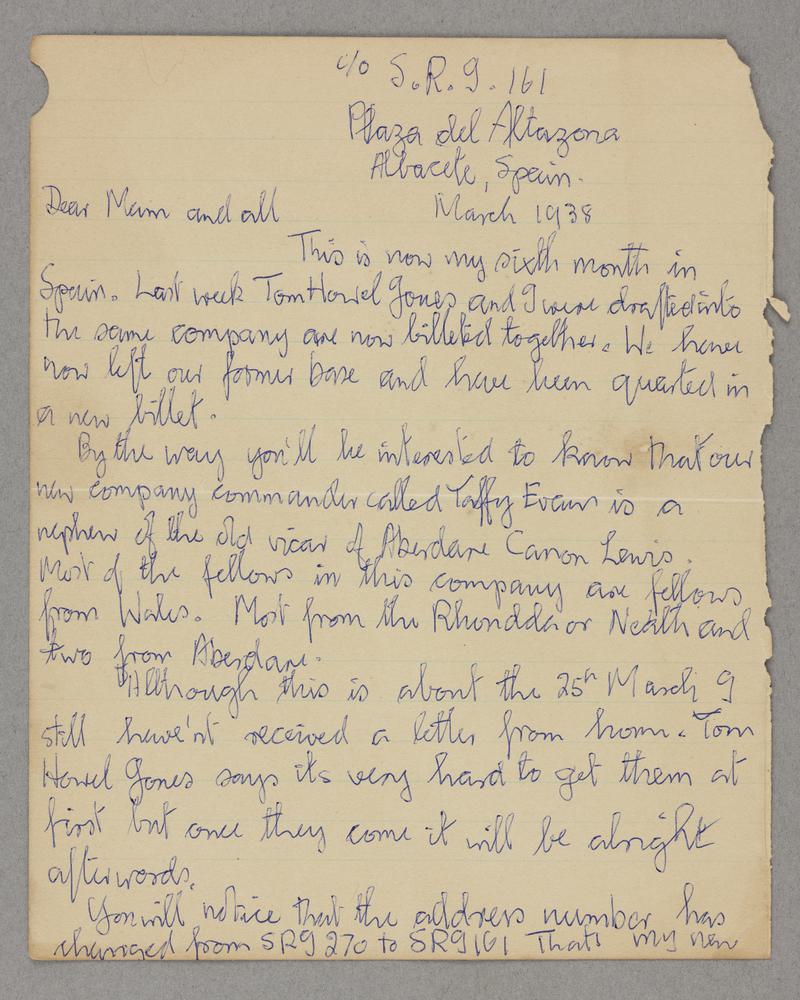 c/o S.R.I. 161
Plaza del Altazona
Albacete, Spain.
Dear Mam and all March 1938
This is now my sixth month in
Spain. Last week Tom Howel Jones and I were drafted into
the same company are now billeted together. We have
now left our former base and have been quarted in
a new billet.
By the way you'll be interested to know that our
new company commander called Taffy Evans is a
nephew of the old vicar of Aberdare Canon Lewis.
Most of the fellows in this company are fellows
from Wales. Most from the Rhondda or Neath and
two from Aberdare.
Although this is about the 25th March I
still have'nt received a letter from home. Tom
Howel Jones says its very hard to get them at
first but once they come it will be alright
afterwords.
You will notice that the address number has
changed from SRI 270 to SRI 161 Thats my new